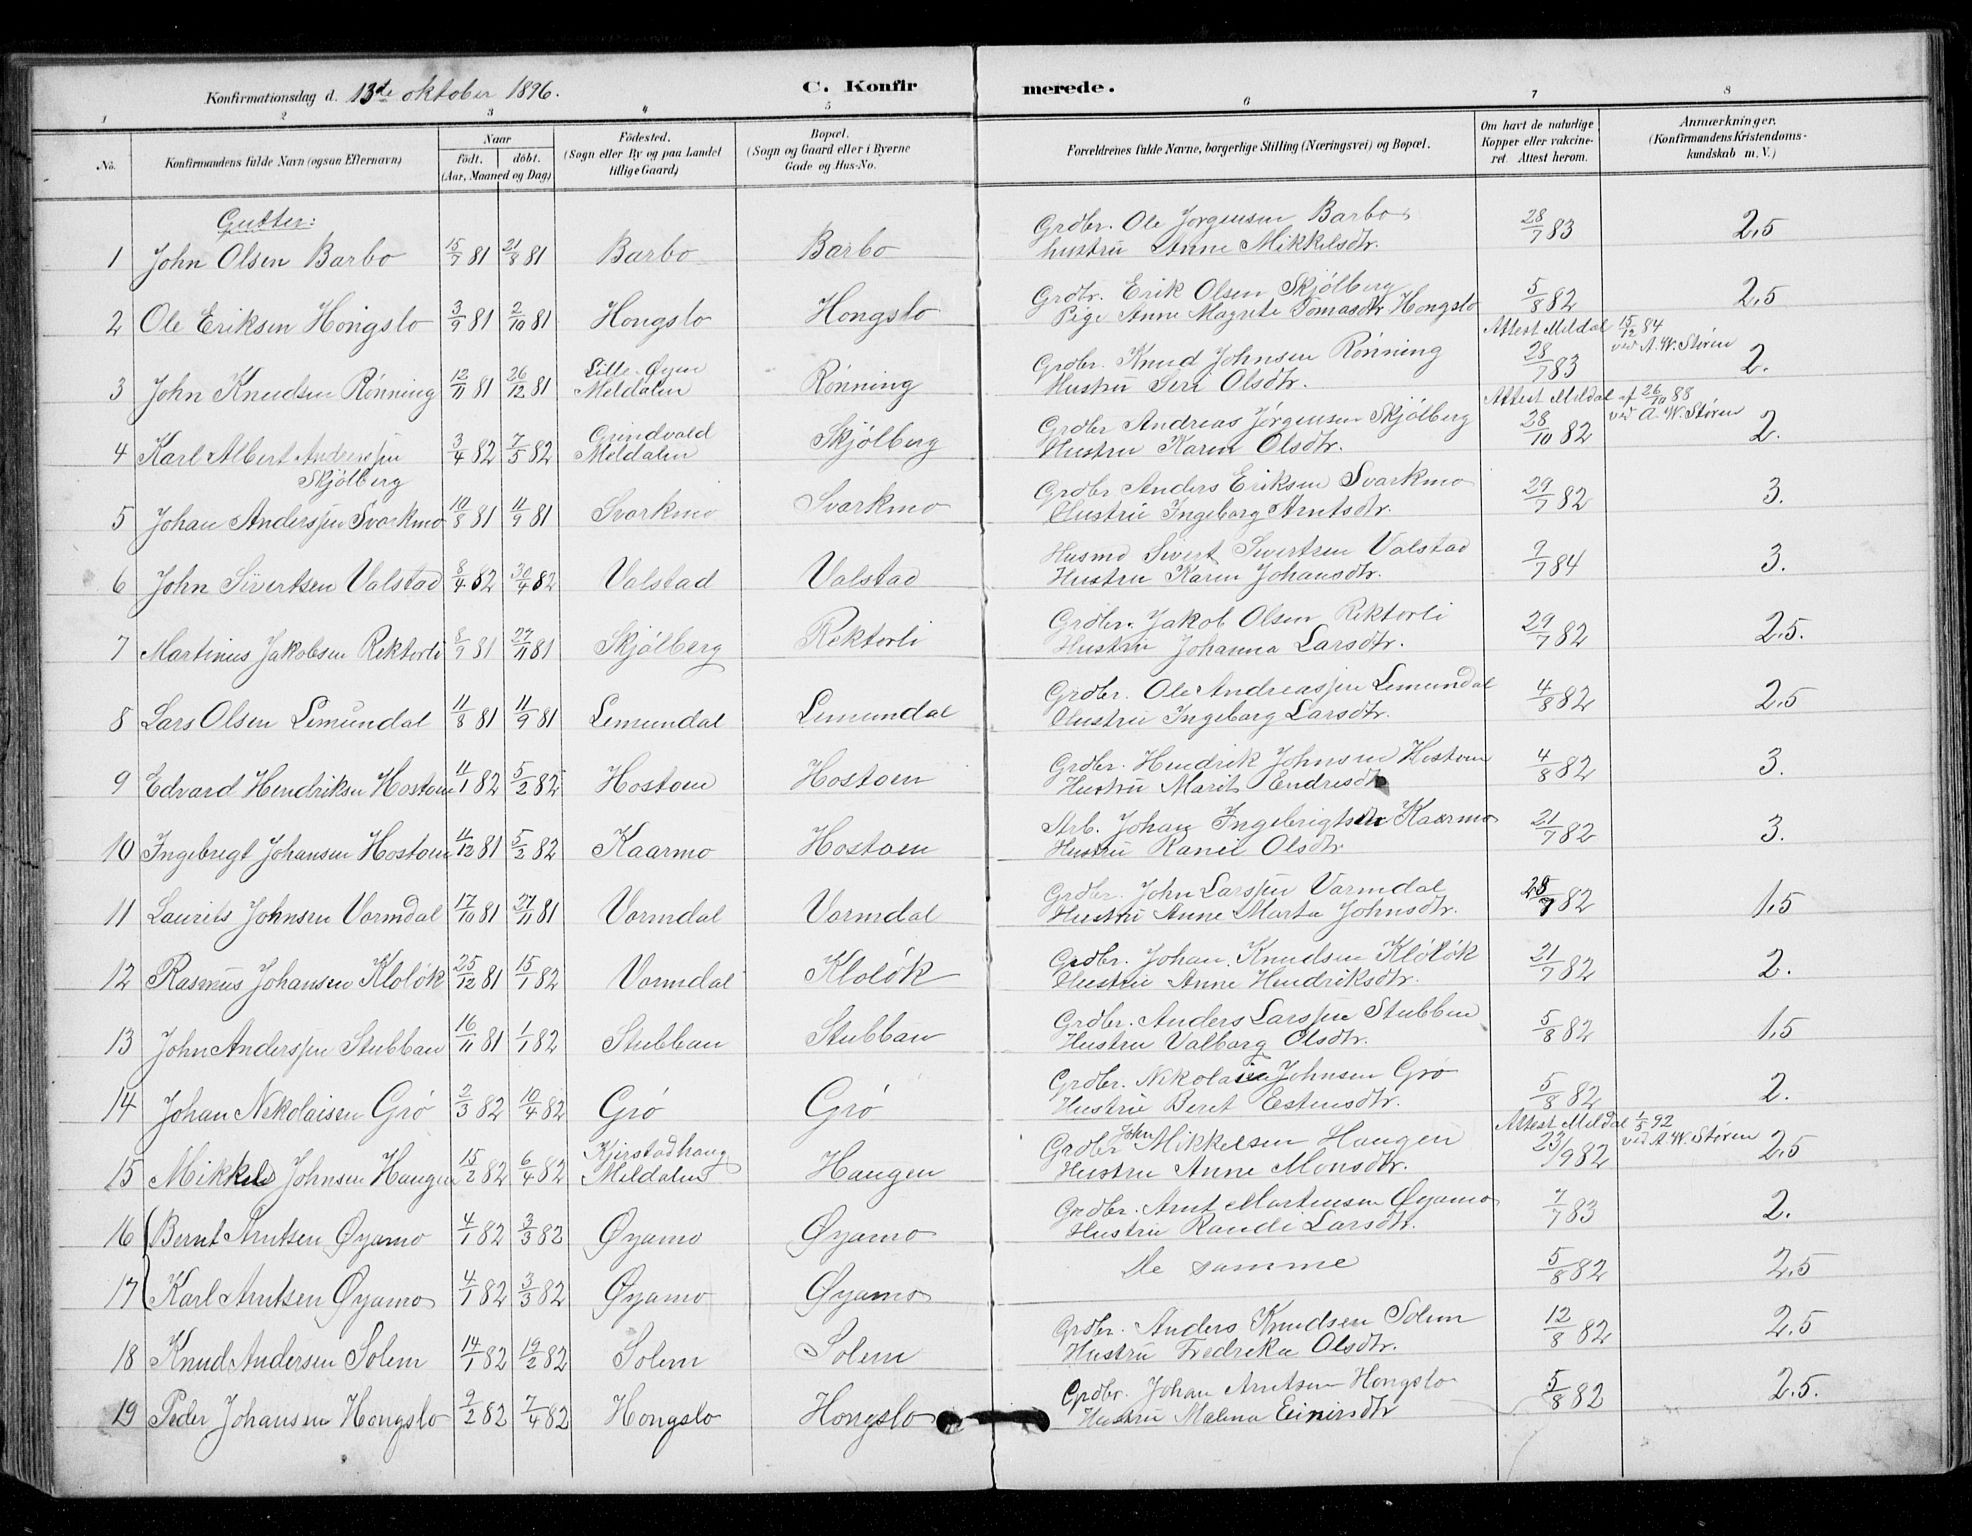 Konfirmationsdag d. 13de oktober 1896.
C. Konfirmerede.
1 2 3 4 5 6 7 8
No.
Konfirmandens fulde Navn (ogsaa Efternavn)
Naar
født. døbt.
(Aar, Maaned og Dag)
Fødested.
(Sogn eller By og paa Landet
tillige Gaard)
Bopæl.
(Sogn og Gaard eller i Byerne
Gade og Hus-No.
Forældrenes fulde Navne, borgerlige Stilling (Næringsvei) og Bopæl.
Om havt de naturlige
Kopper eller vakcine-
ret. Attest herom.
Anmærkninger.
(Konfirmandens Kristendoms-
kundskab m. V.)
Gutter:
1 John Olsen Barbo 15/7 81 21/8 81 Barbo Barbo Grdbr. Ole Jørgensen Barbo 28/7 83 2,5
hustru Anne Mikkelsdtr.
2 Ole Eriksen Hongslo 3/9 81 2/10 81 Hongslo Hongslo Grdbr. Erik Olsen Skjølberg 5/8 82 2,5
Pige Anne Magrete Tomasdtr Hongslo
Attest Meldal 15/12 84
ved A. W. Støren
3 John Knudsen Rønning 12/11 81 26/12 81 Lille-Øyen Rønning Grdbr. Knud Johnsen Rønning 28/7 83 2.
Meldalen Hustru Seri Olsdtr.
Attest Meldal af 26/10 88
ved A. W. Støren
4 Karl Albert Andreassen 3/4 82 7/5 82 Grindvald Skjølberg Grdbr Andreas Jørgensen Skjølberg 28/10 82 2.
Skjølberg Meldalen Hustru Karen Olsdtr.
5 Johan Anderssen Svarkmo 10/8 81 11/9 81 Svorkmo Svarkmo Grdbr Anders Eriksen Svarkmo 29/7 82 3.
Hustru Ingeborg Arntsdtr.
6 John Sivertsen Valstad 8/4 82 30/4 82 Valstad Valstad Husmd Sivert Sivertsen Valstad 9/7 84 3.
Hustru Karen Johansdtr.
7 Martinus Jakobsen Rektorli 8/9 81 27/11 81 Skjølberg Rektorli Grdbr. Jakob Olsen Rektorli 29/7 82 2,5.
Hustru Johanna Larsdtr.
8 Lars Olsen Lemundal 11/8 81 11/9 81 Lemundal Lemundal Grdbr. Ole Andreassen Lemundal 4/8 82 2,5
Hustru Ingeborg Larsdtr.
9 Edvard Hendriksen Hostoen 11/1 82 5/2 82 Hostoen Hostoen Grdbr. Hendrik Johnsen Hostoen 4/8 82 3.
Hustru Marit Endresdtr
10 Ingebrigt Johansen Hostoen 11/12 81 5/2 82 Kaarmo Hostoen Arb. Johan Ingebrigtsen Kaarmo 21/7 82 3.
Hustru Olsdtr.
11 Laurits Johnsen Vormdal 17/10 81 27/11 81 Vormdal Vormdal Grdbr. John Larssen Vormdal 28/7 82 1,5
Hustru Anne Marta Johnsdtr.
12 Rasmus Johansen Kløløk 25/12 81 15/1 82 Vormdal Kløløk Grdbr. Johan Knudsen Kløløk 21/7 82 2.
Hustru Anne Hendriksdtr.
13 John Anderssen Stubban 16/11 81 1/1 82 Stubban Stubban Grdbr. Anders Larssen Stubban 5/8 82 1,5
Hustru Valborg Olsdtr.
14 Johan Nikolaisen Grø 2/3 82 10/4 82 Grø Grø Grdbr. Nikolai Johnsen Grø 5/8 82 2.
Hustru Beret Estensdtr.
Attest Meldal 1/5 92
ved A. W. Støren
15 Mikkel Johnsen Haugen 15/2 82 6/4 82 Kjerstadhaug Haugen Grdbr John Mikkelsen Haugen 23/9 82 2,5
Meldalen Hustru Anne Monsdtr.
16 Bernt Arntsen Øyamo 4/1 82 3/3 82 Øyamo Øyamo Grdbr. Arnt Martinsen Øyamo 7/7 83 2.
Hustru Randi Larsdtr.
17 Karl Arntsen Øyamo 4/1 82 3/3 82 Øyamo Øyamo De samme 5/8 82 2,5
18 Knud Andersen Solem 14/1 82 19/2 82 Solem Solem Grdbr. Anders Knudsen Solem 12/8 82 2,5
Hustru Fredrika Olsdtr.
19 Peder Johansen Hongslo 9/2 82 7/4 82 Hongslo Hongslo Grdbr. Johan Arntsen Hongslo 5/8 82 2,5.
Hustru Malena Einersdtr